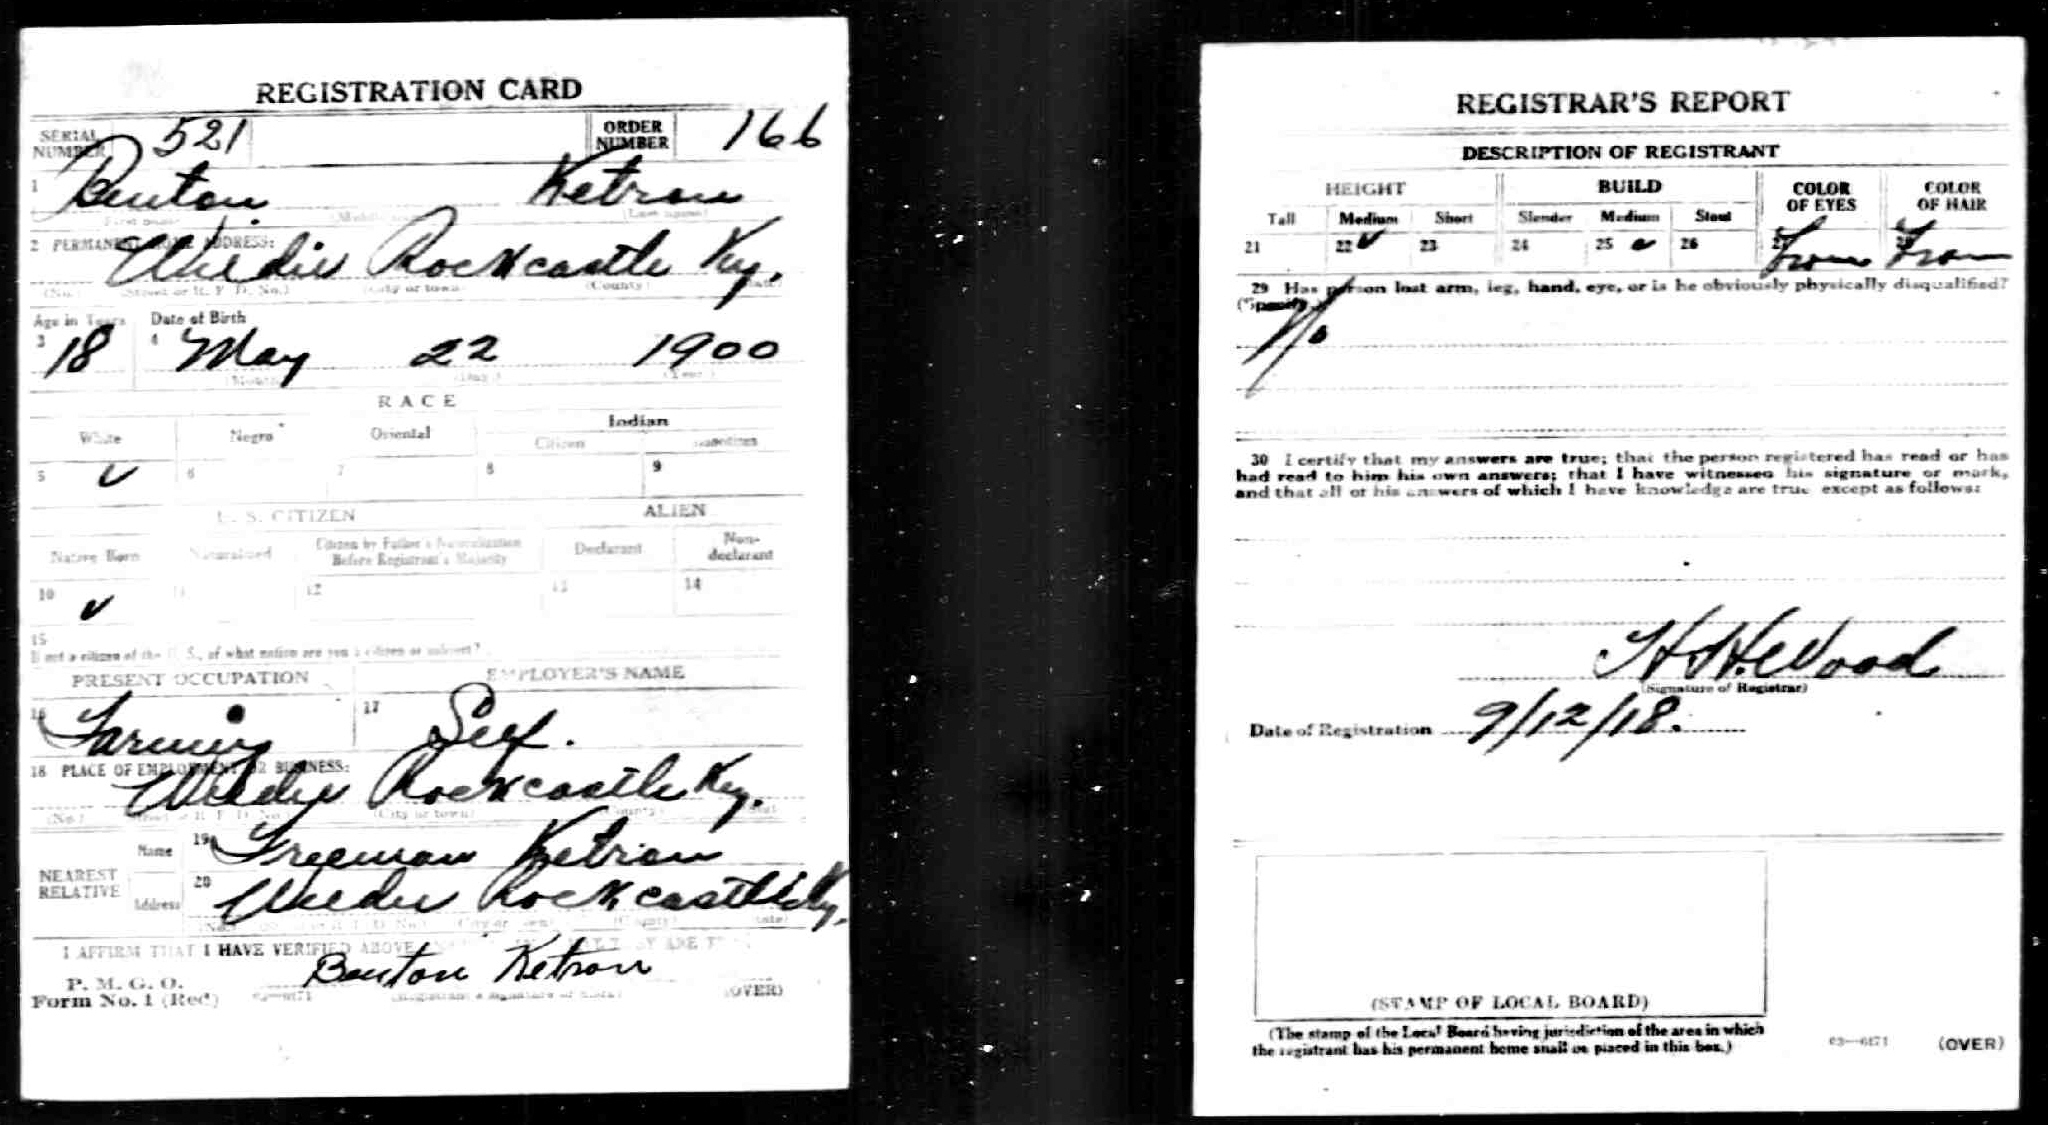 REGISTRATION CARD
SERIAL NUMBER 521 ORDER NUMBER 166
1 Benton Ketron
(Last name)
2 PERMANENT HOME ADDRESS:
Wildie Rockcastle Ky.
(No.) (Street or R. F. D. No.) (City or town) (County) (State)
Age in Years Date of Birth
3 18 4 May 22 1900
(Month) (Day) (Year)
RACE
White Negro Oriental Indian
Citizen
5 ✓ 6 7 8 9
U. S. CITIZEN ALIEN
Native Born Naturalized Citizen by Father's Naturalization Before Registrant's Majority Declarant Non-declarant
10 ✓ 11 12 13 14
15
If not a citizen of the U. S., of what nation are you a citizen or subject?
PRESENT OCCUPATION EMPLOYER'S NAME
16 Farming 17 Self.
18 PLACE OF EMPLOYMENT OR BUSINESS:
Wildie Rockcastle Ky.
(No.) (Street or R. F. D. No.) (City or town) (County) (State)
NEAREST RELATIVE Name 19 Freeman Ketron
Address 20 Wildie Rockcastle Ky.
(No.) (Street or R. F. D. No.) (City or town) (County) (State)
I AFFIRM THAT I HAVE VERIFIED ABOVE ANSWERS AND THAT THEY ARE TRUE
P. M. G. O.
Form No. 1 (Red) 03—6171 Benton Ketron
(Registrant's signature or mark) (OVER)
REGISTRAR'S REPORT
DESCRIPTION OF REGISTRANT
HEIGHT BUILD COLOR OF EYES COLOR OF HAIR
Tall Medium Short Slender Medium Stout
21 22 ✓ 23 24 25 ✓ 26 27 28
29 Has person lost arm, leg, hand, eye, or is he obviously physically disqualified?
(Specify.)
No
30 I certify that my answers are true; that the person registered has read or has
had read to him his own answers; that I have witnessed his signature or mark,
and that all of his answers of which I have knowledge are true except as follows:
H. H. Wood
(Signature of Registrar)
Date of Registration 9/12/18.
(STAMP OF LOCAL BOARD)
(The stamp of the Local Board having jurisdiction of the area in which
the registrant has his permanent home shall be placed in this box.)
03—6171 (OVER)